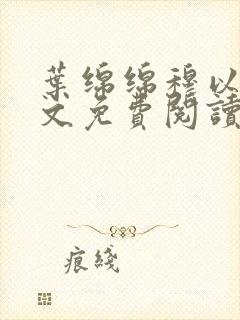 葉綿綿穆以
文免費閱讀
痕綫